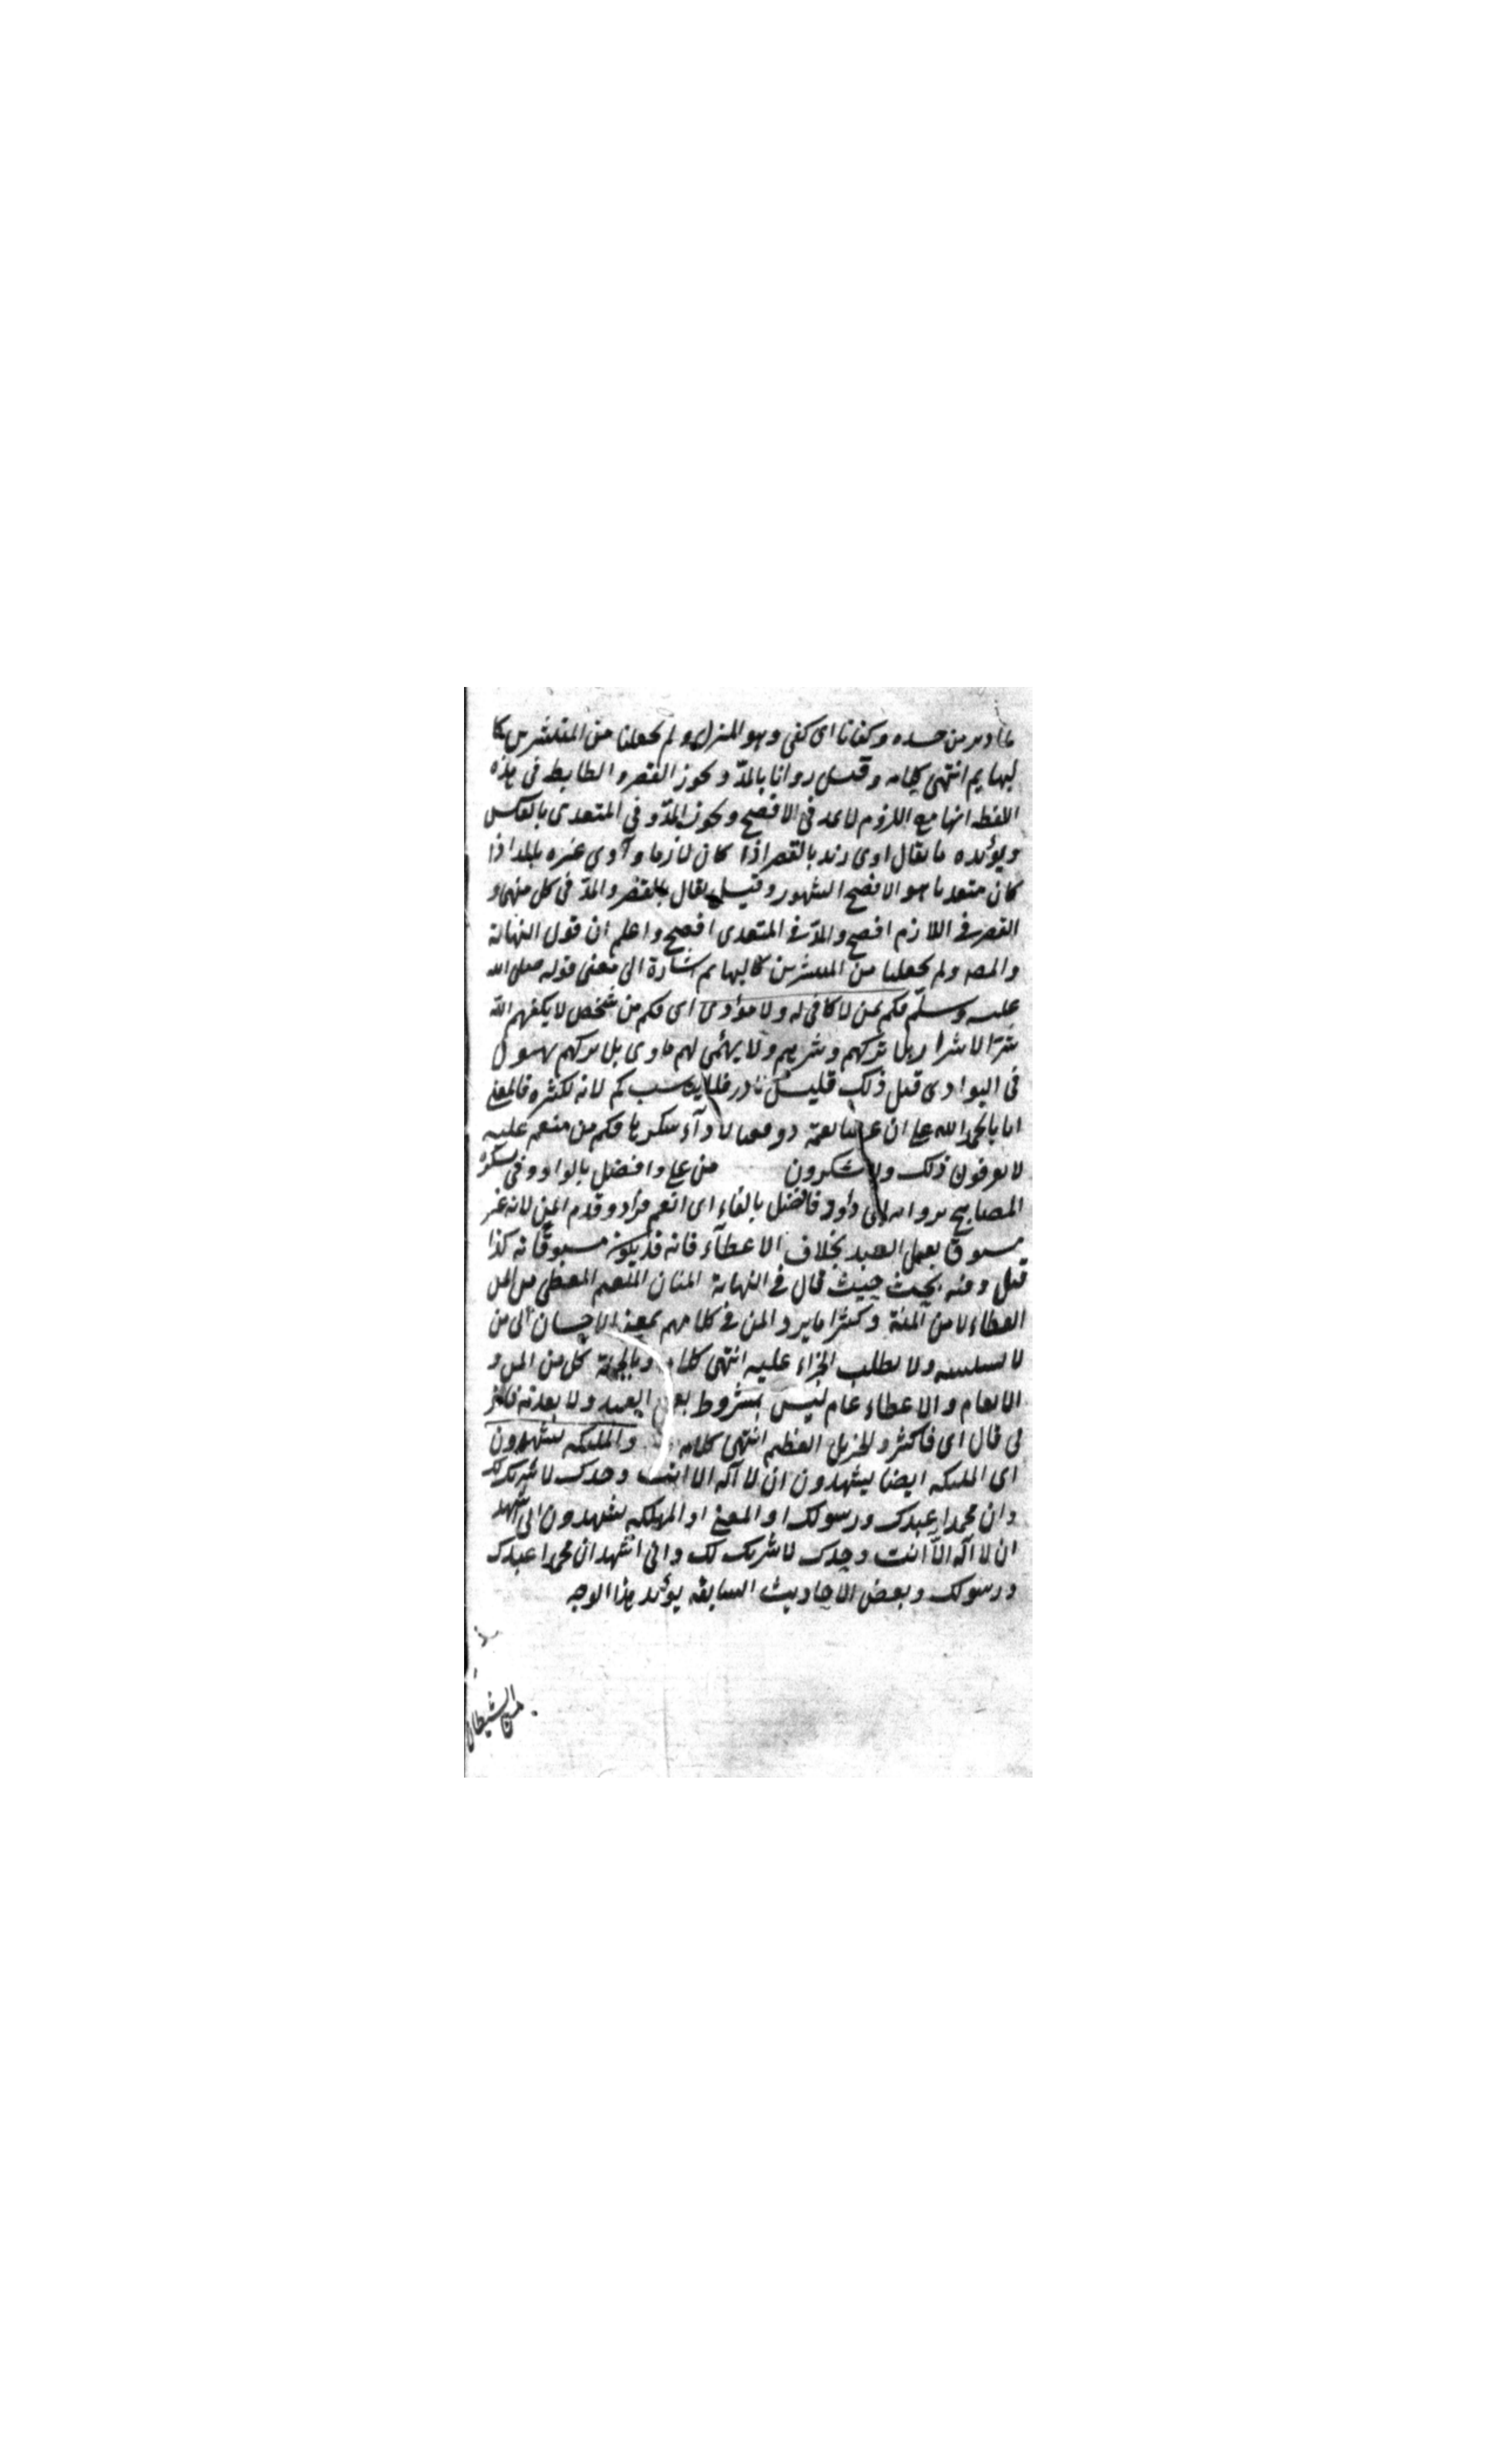 وكفانا اى كفى وهو المنزل ولم يجعلنا من المنتشرين كا
لبهايم انتهى كلامه وقيل روانا بالمدّ ويجوز القصر والضابط فى هذه
اللفظة انها مع اللزوم لا يمد فى الافصح ويجوز المدّ وفى المتعدى بالعكس
ويؤيده ما يقال اوى زيد بالقصر اذا كان لازما وآوى غيره بالمد اذا
كان متعديا هو الافصح المشهور وقيل يقال بالقصر والمدّ فى كل منهما و
القصر فى اللازم افصح والمدّ فى المتعدى افصح واعلم ان قول النهاية
والمص ولم يجعلنا من المنتشرين كالبهايم اشارة الى معنى قوله صلى الله
عليه وسلّم فكم ممن لا كافى له ولا مؤوى اى فكم من شخص لا يكفيهم الله
شرّ الاشرار بل تركهم وشرهم ولا يهئ لهم ماوى بل تركهم
فى البوادى قيل ذلك قليل نادر فلا يناسب كم لانه لكثرة فالمعنى
انا نحمد الله على ان لاداء شكرها فكم من منعم عليه
لا يعرفون ذلك ولا يشكرون من على وافضل بالواو وفى
المصابيح برواية ابى داود فافضل بالفاء اى انعم فزاد وقدم المن لانه غير
مسبوق بعمل العبد بخلاف الاعطآء فانه قد يكون مسبوقا به كذا
قيل وفيه بحث حيث قال فى النهاية المنان المنعم المعطى من المن
العطاء لا من المنة وكثيرا ما يرد المن فى كلامهم بمعنى الاحسان الى من
لا يستثيبه ولا يطلب الجزاء عليه انتهى كلامه وبالجملة كل من المن و
الانعام والاعطاء عام ليس بمشروط العبد ولا بعدمه
لى قال اى فاكثر والجزيل العظيم انتهى كلامه والمليكه يشهدون
اى المليكه ايضا يشهدون ان لا اله الا انت وحدك لا شريك لك
وان محمدا عبدك ورسولك او المعنى ان المليكه يشهدون انى اشهد
ان لا اله الاّ انت وحدك لا شريك لك وانى اشهد ان محمدا عبدك
ورسولك وبعض الاحاديث السابقه يؤيد هذا الوجه
الشيطان